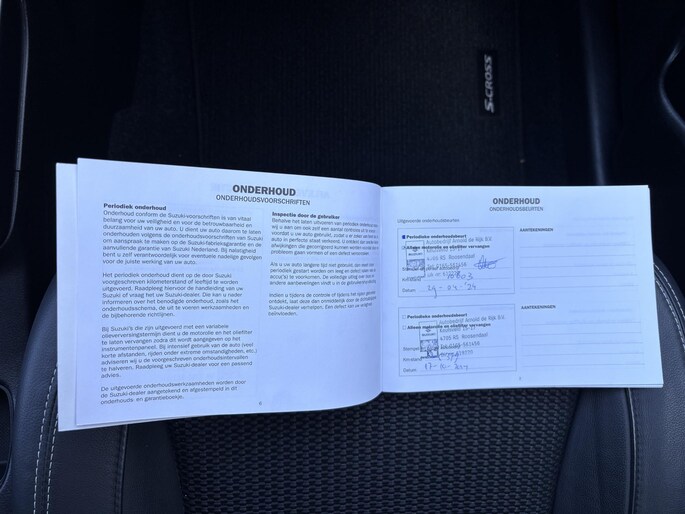 S-CROSS
ONDERHOUD
ONDERHOUDSVOORSCHRIFTEN
Periodiek onderhoud
Onderhoud conform de Suzuki-voorschriften is van vitaal
belang voor uw veiligheid en voor de betrouwbaarheid en
duurzaamheid van uw auto. U dient uw auto daarom te laten
onderhouden volgens de onderhoudsvoorschriften van Suzuki
om aanspraak te maken op de Suzuki-fabrieksgarantie en de
aanvullende garantie van Suzuki Nederland. Bij nalatigheid
bent u zelf verantwoordelijk voor eventuele nadelige gevolgen
voor de juiste werking van uw auto.
Het periodiek onderhoud dient op de door Suzuki
voorgeschreven kilometerstand of leeftijd te worden
uitgevoerd. Raadpleeg hiervoor de handleiding van uw
Suzuki of vraag het uw Suzuki-dealer. Die kan u nader
informeren over het benodigde onderhoud, zoals het
onderhoudsschema, de uit te voeren werkzaamheden en
de bijbehorende richtlijnen.
Bij Suzuki's die zijn uitgevoerd met een variabele
olieverversingstermijn dient u de motorolie en het oliefilter
te laten vervangen zodra dit wordt aangegeven op het
instrumentenpaneel. Bij intensief gebruik van de auto (veel
korte afstanden, rijden onder extreme omstandigheden, etc.)
adviseren wij u de voorgeschreven onderhoudsintervallen
te halveren. Raadpleeg uw Suzuki-dealer voor een passend
advies.
De uitgevoerde onderhoudswerkzaamheden worden door
de Suzuki-dealer aangetekend en afgestempeld in dit
onderhouds- en garantieboekje.
Inspectie door de gebruiker
Behalve het laten uitvoeren van periodiek onderhoud
wij u aan om ook zelf een aantal controles uit te
voordat u uw auto gebruikt, zodat u er zeker van bent
auto in perfecte staat verkeert. U ontdekt dan eerder
afwijkingen die gecorrigeerd kunnen worden voordat
probleem gaan vormen of een defect veroorzaken.
Als u uw auto langere tijd niet gebruikt, dan moet
periodiek gestart worden om leeg en defect raken van
accu('s) te voorkomen. De volledige uitleg over dit
andere aanbevelingen vindt u in de gebruikershandleiding
Indien u tijdens de controle of tijdens het rijden gebreken
ontdekt, laat deze dan onmiddellijk door de officiële
Suzuki-dealer verhelpen. Een defect kan de veiligheid
beïnvloeden.
6
ONDERHOUD
ONDERHOUDSBEURTEN
Uitgevoerde onderhoudsbeurten:
Periodieke onderhoudsbeurt
Autobedrijf Arnold de Rijk B.V.
Alleen motorolie en oliefilter vervangen
4705 RS Roosendaal
Tel. 0165-561456
Datum:
24-04-'24
AANTEKENINGEN
Periodieke onderhoudsbeurt
Autobedrijf Arnold de Rijk B.V.
Alleen motorolie en oliefilter vervangen
4705 RS Roosendaal
Tel. 0165-561456
Datum:
AANTEKENINGEN